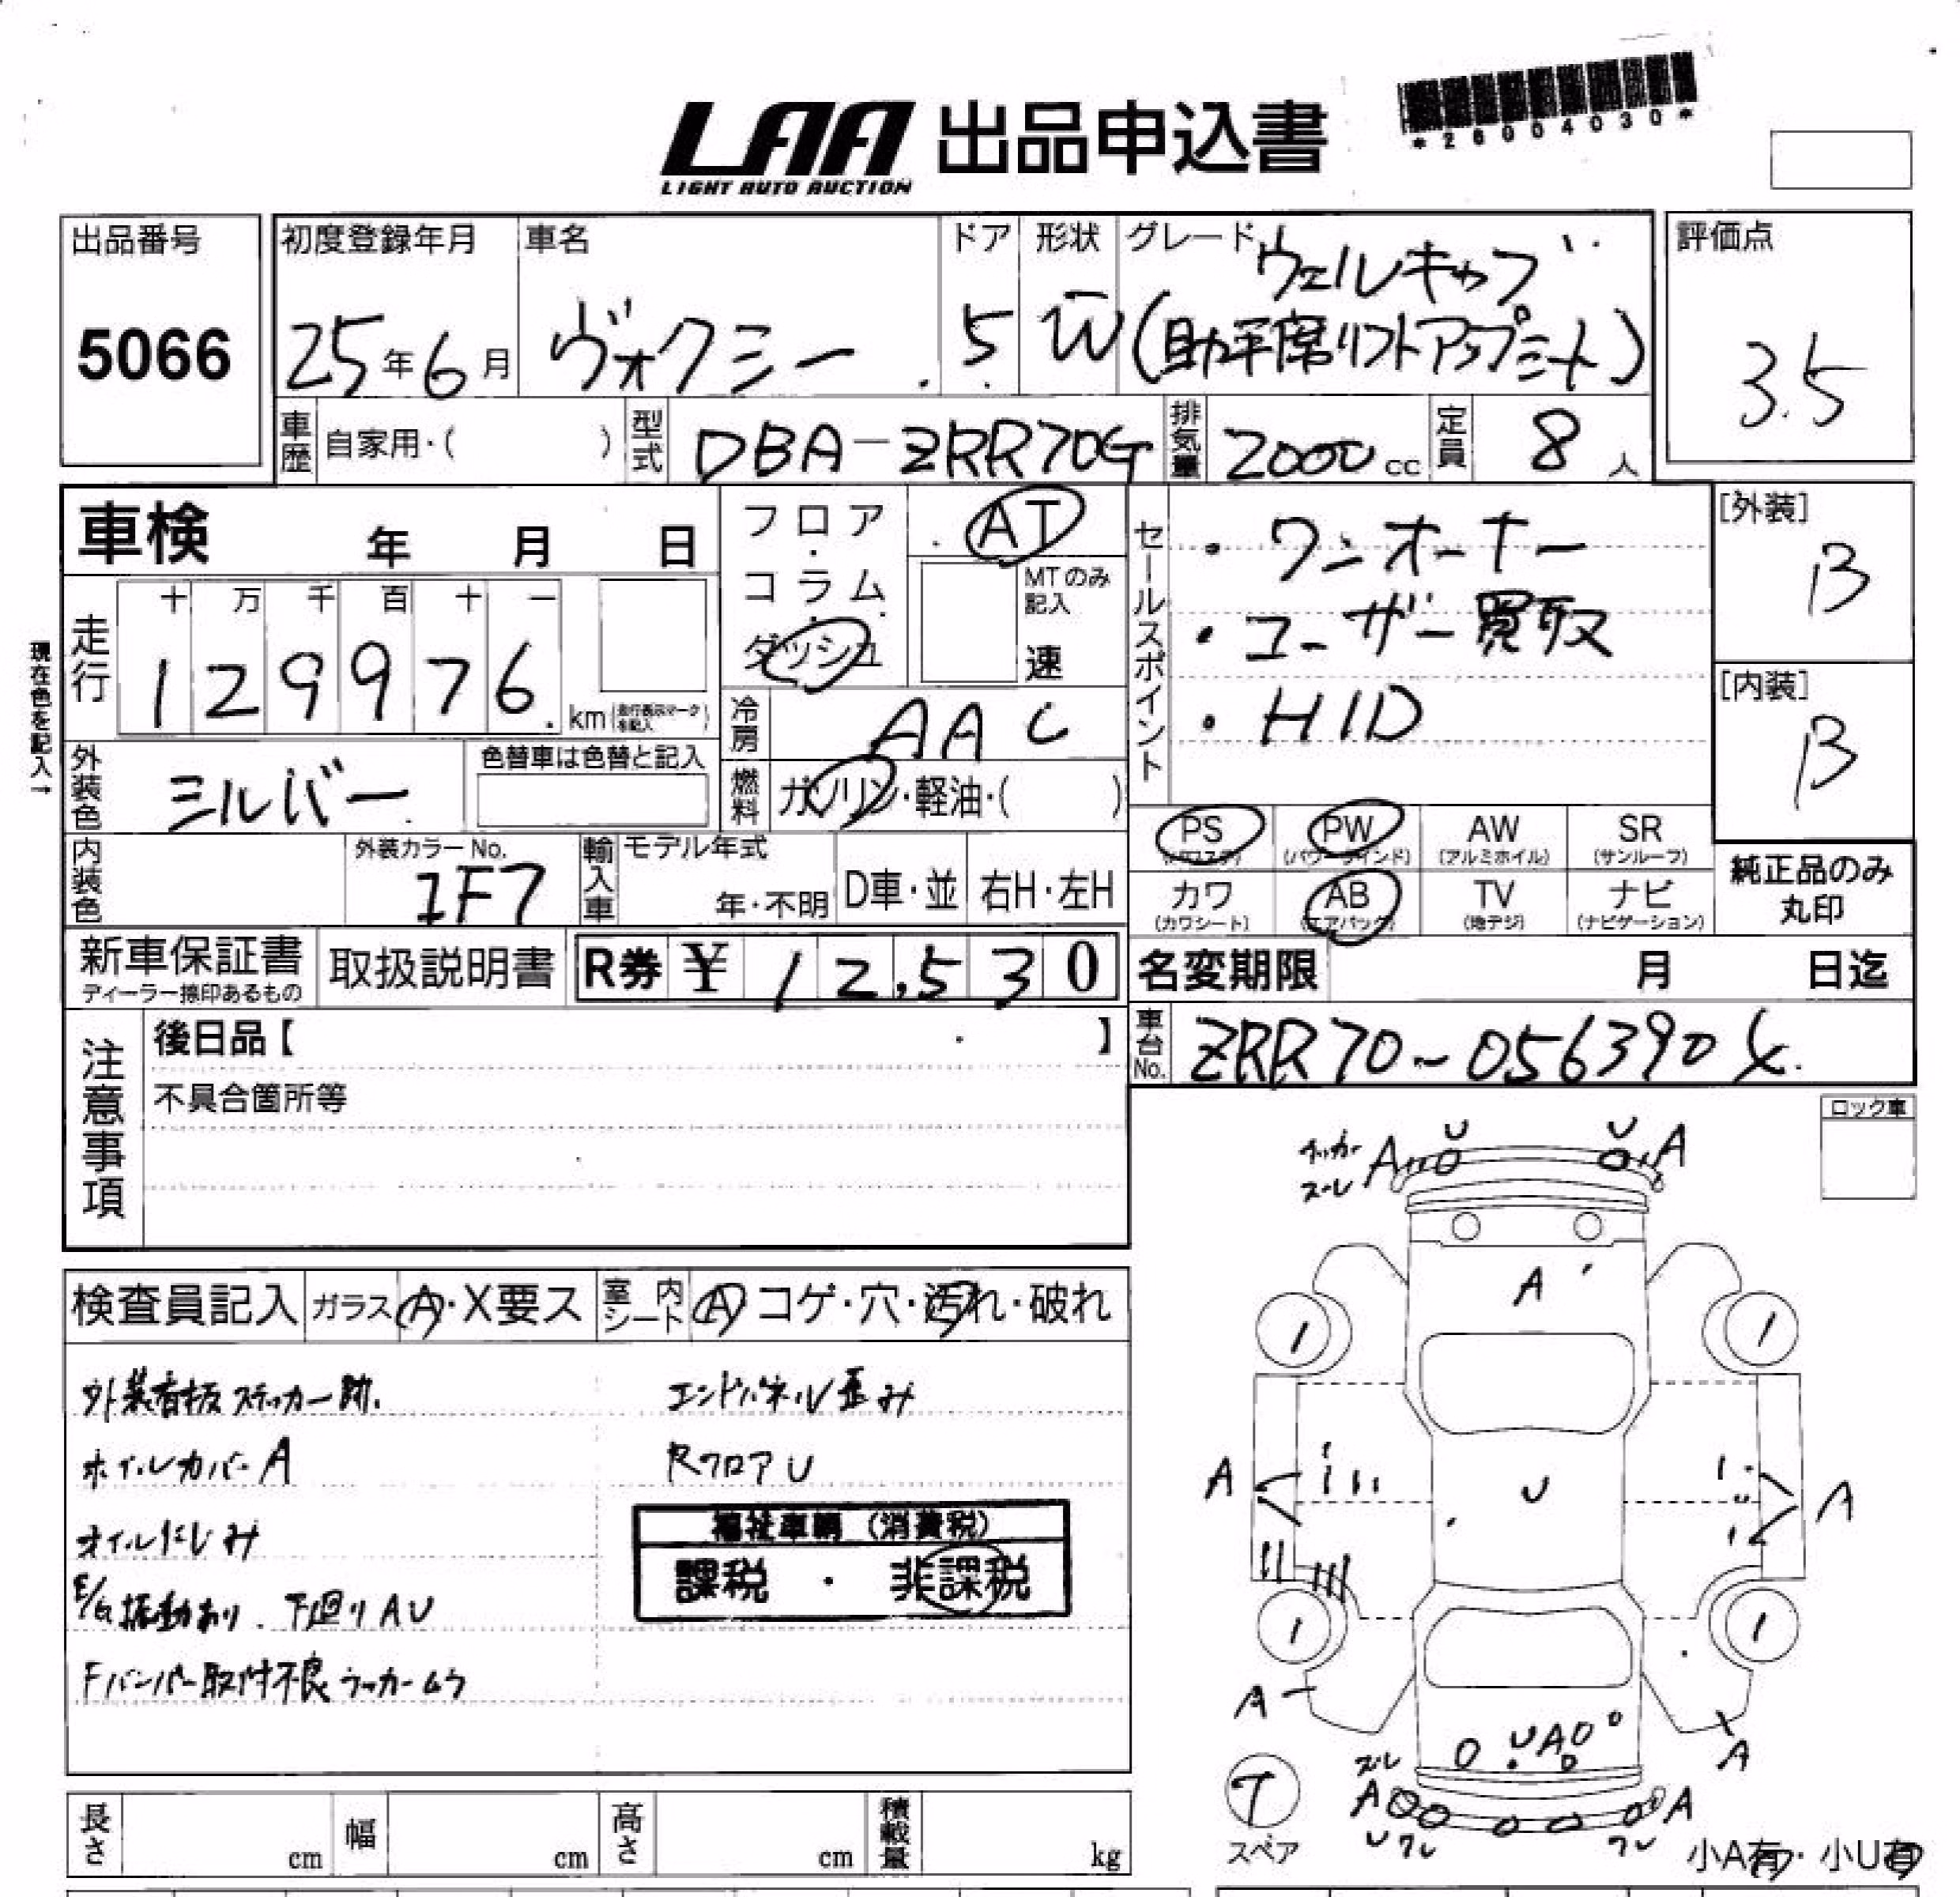 LAA 出品申込書
LIGHT AUTO AUCTION
*26004030*
出品番号
5066
初度登録年月
25年6月
車名
ヴォクシー
ドア
5
形状
W
グレード
ウェルキャブ
(助手席リフトアップシート)
評価点
3.5
車歴 自家用・( )
型式 DBA-ZRR70G
排気量 2000cc
定員 8人
車検 年 月 日
フロア・コラム・ダッシュ
AT
MTのみ記入
速
セールスポイント
・ワンオーナー
・ユーザー買取
・HID
[外装]
B
[内装]
B
現在色を記入→
走行
十 万 千 百 十 一
129976 km
冷房 AAC
燃料 ガソリン・軽油・( )
外装色 シルバー
色替車は色替と記入
内装色
外装カラーNo.
1F7
輸入車
モデル年式
年・不明
D車・並
右H・左H
PS
PW (パワーウインド)
AW (アルミホイル)
SR (サンルーフ)
カワ (カワシート)
AB (エアバック)
TV (地デジ)
ナビ (ナビゲーション)
純正品のみ丸印
新車保証書
ディーラー捺印あるもの
取扱説明書
R券 ¥ 12,530
名変期限 月 日迄
車台No. ZRR70-0563904
注意事項
後日品【 】
不具合箇所等
ロック車
検査員記入
ガラス A・X要ス
室内シート A コゲ・穴・汚れ・破れ
外装看板ステッカー跡.
エンドパネル歪み
ホイルカバーA
RフロアU
オイルにじみ
福祉車輌(消費税)
課税・非課税
E/G振動あり. 下廻りAU
Fバンパー取付不良 ラッカームラ
A U U A
A
A U A
A
U A
A
T
スペア
A A
U ワレ ワレ
小A有・小U有
長さ cm
幅 cm
高さ cm
積載量 kg